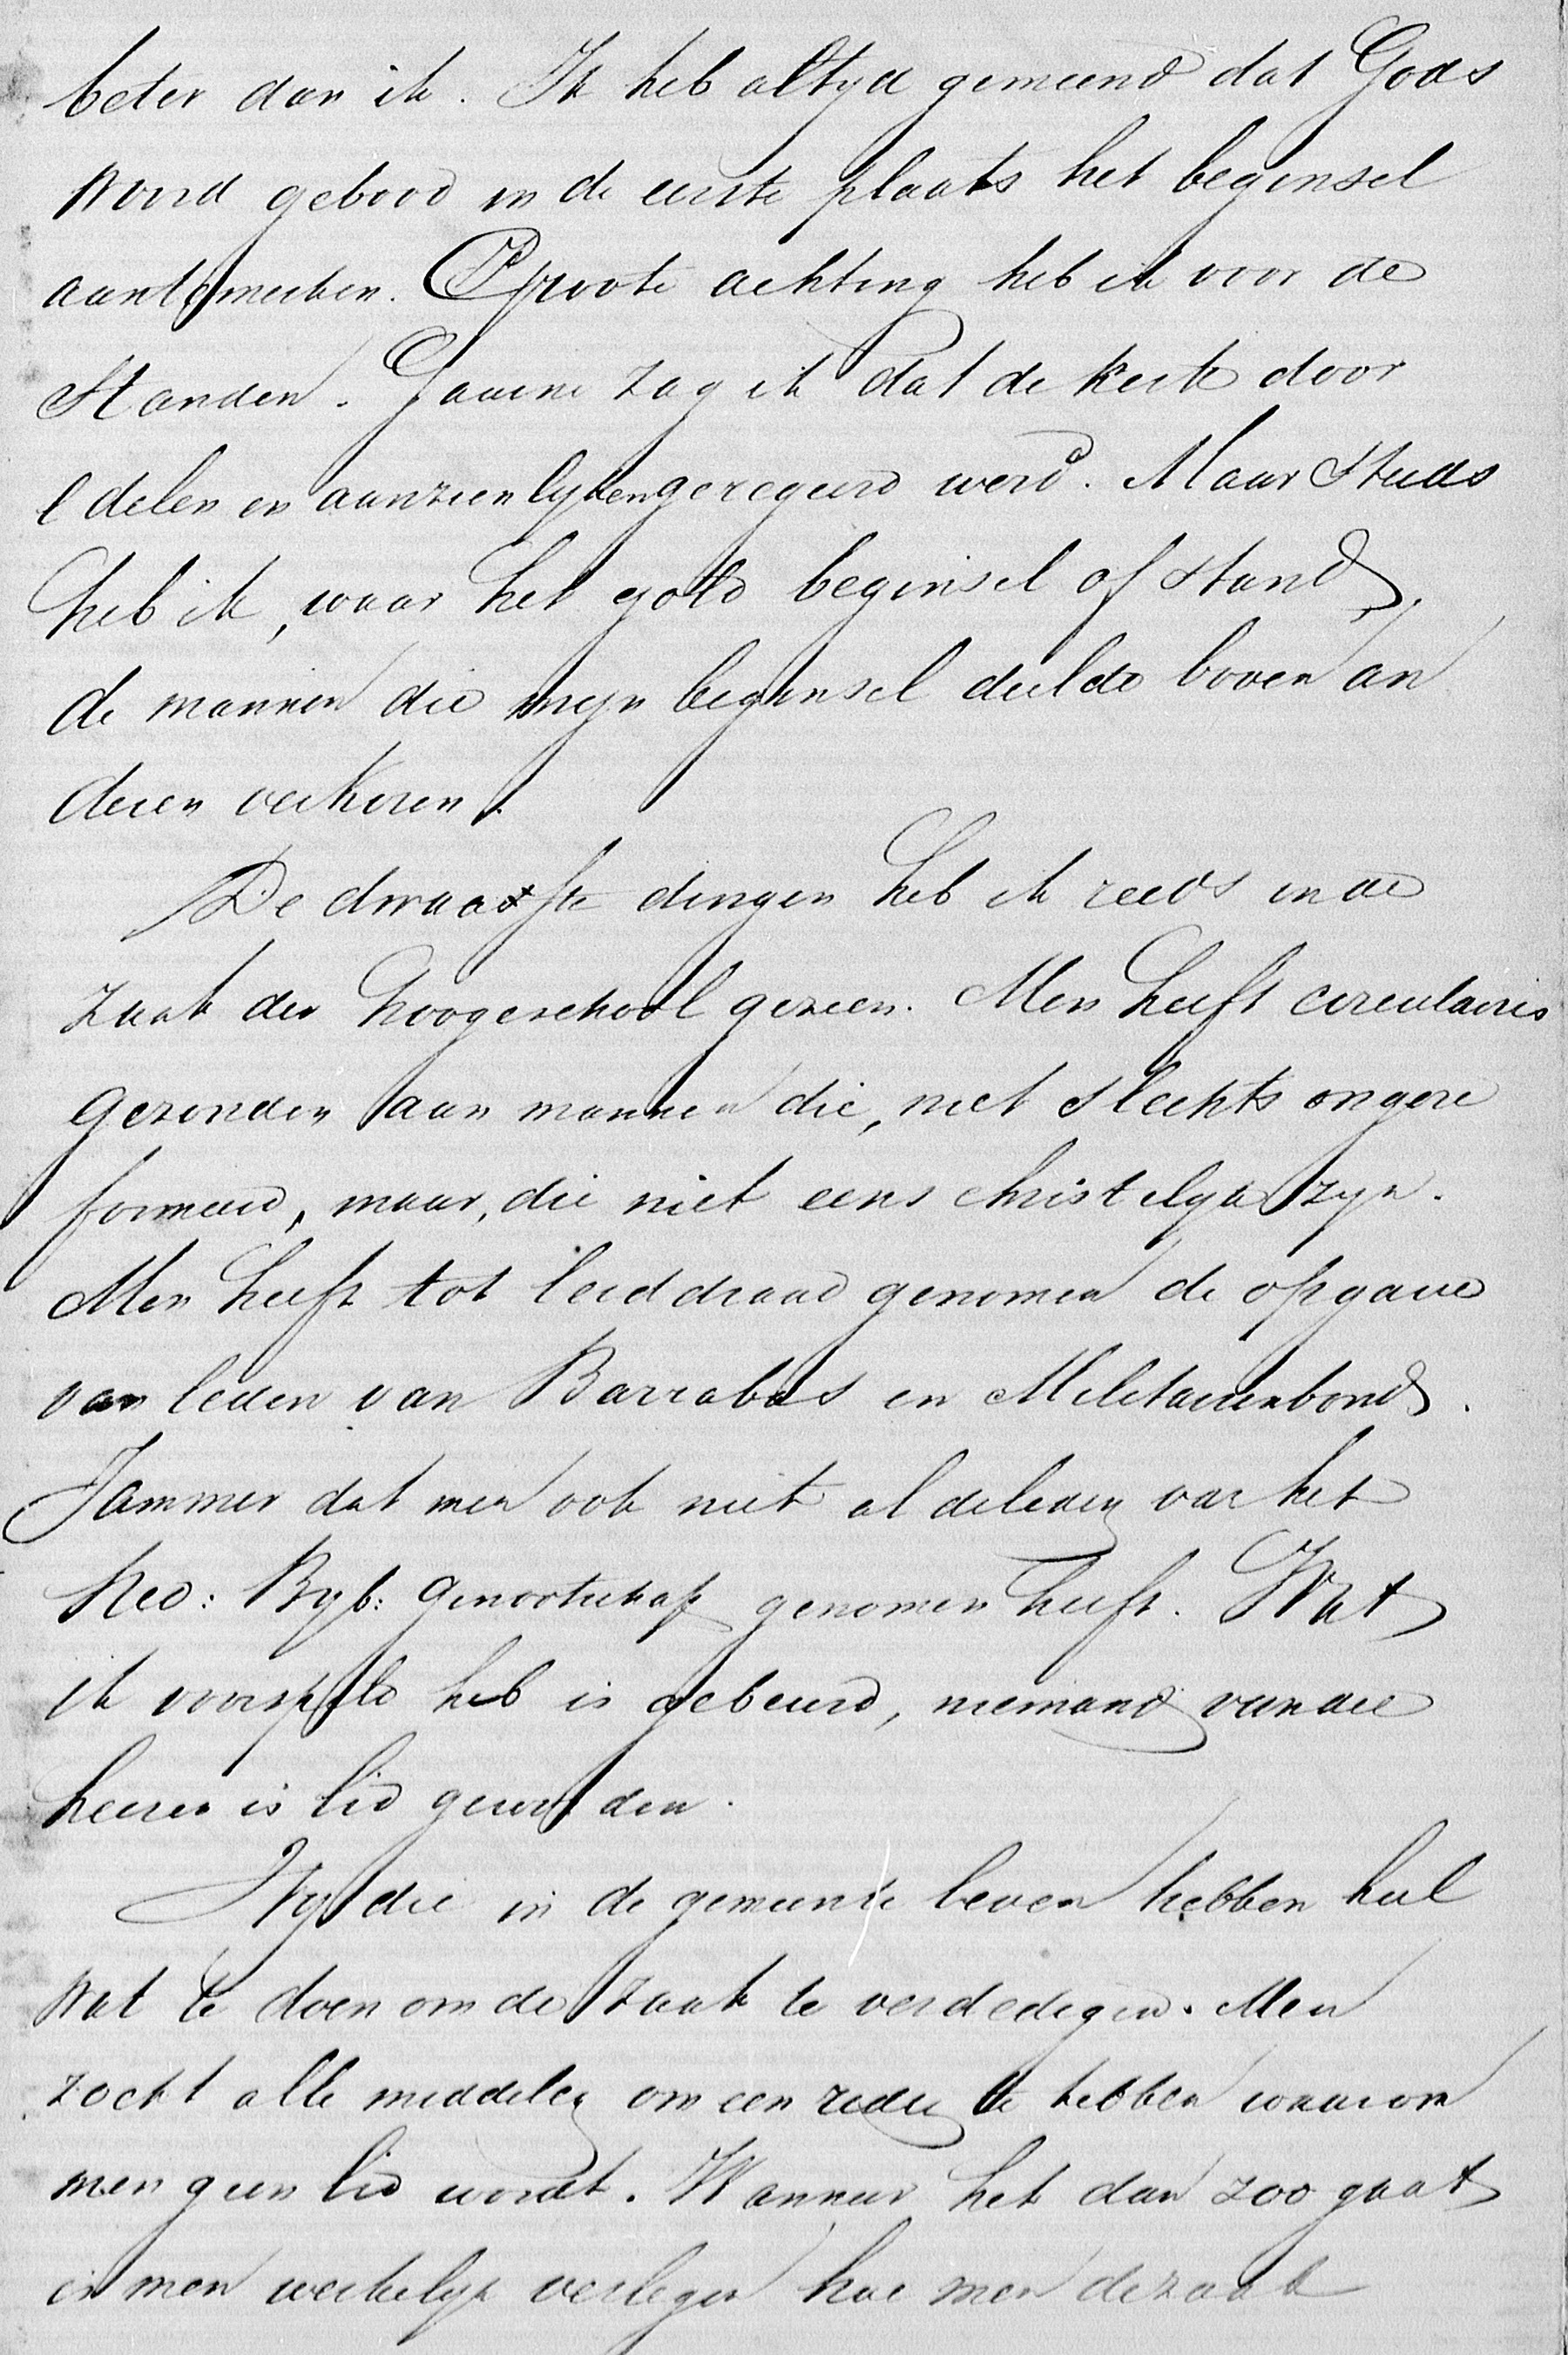 beter dan ik. Ik heb altyd gemeend dat Gods
woord gebood in de eerste plaats het beginsel
aantemerken. Groote achting heb ik voor de
Standen. Gaarne zag ik dat de kerk door
Edelen en aanzienlyken geregeerd werd. Maar steeds
heb ik, waar het gold beginsel of stand,
de mannen die myn beginsel deelde boven an
deren verkoren.
De dwaaste dingen heb ik reeds in de
zaak der hoogeschool gezien. Men heeft circulaires
gezonden aan mannen die, niet slechts ongere
formeerd, maar, die niet eens christelyk zyn.
Men heeft tot leiddraad genomen de opgave
van leden van Barrabas en Militairenbond.
Jammer dat men ook niet al de leden van het
Ned: Byb: Genootschap genomen heeft. Wat
ik voorspeld heb is gebeurd, niemand van die
heeren is lid geworden.
Wy die in de gemeente leven hebben heel
wat te doen om de zaak te verdedigen. Men
zoekt alle middelen om een reden te hebben waarom
men geen lid wordt. Wanneer het dan zoo gaat
is men werkelyk verlegen hoe men de zaak